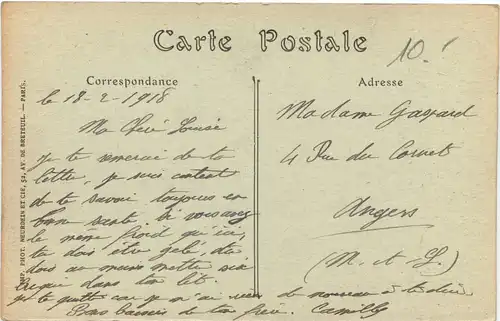 Carte Postale
10.
Correspondance
Adresse
le 18-2-1918
Ma Chère Louise
Je te remercie de ta
lettre, je suis content
de te savoir toujours en
bonne santé. Si vous avez
le même froid qu'ici,
tu dois être gelé, tu
dois au moins mettre six
briques dans ton lit.
Je te quitte car je n'ai rien de nouveau à te dire
Bons baisers de ton frère. Camille
Madame Gaspard
4 Rue du Cornet
Angers
(M. et L.)
IMP. PHOT. NEURDEIN ET CIE, 52, AV. DE BRETEUIL. — PARIS.